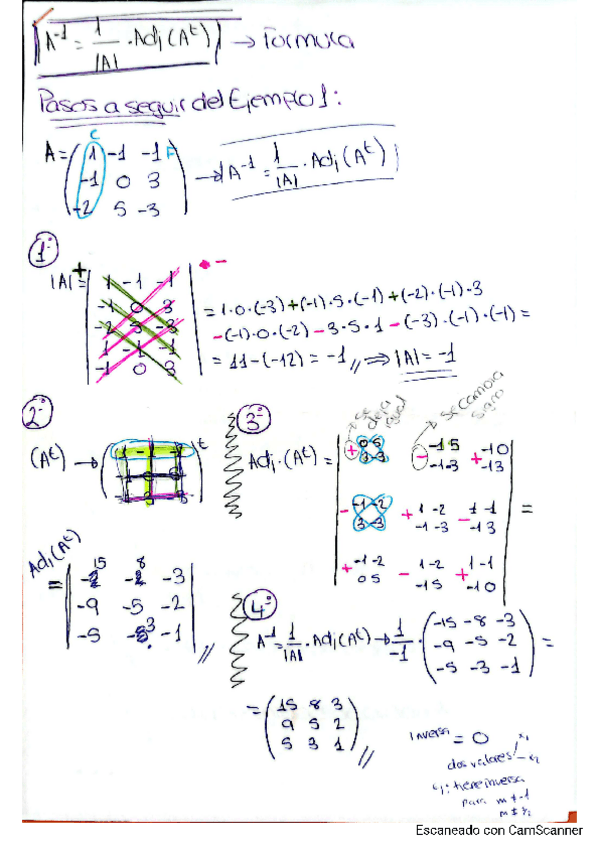 A⁻¹ = 1/|A| · Adj(Aᵗ) → Formula
Pasos a seguir del Ejemplo 1:
C
A = (1 -1 -1 F → A⁻¹ = 1/|A| · Adj(Aᵗ)
-1 0 3
-2 5 -3)
1º
|A| = + 1 -1 -1 • -
-1 0 3 = 1·0·(-3)+(-1)·5·(-1)+(-2)·(-1)·3
-2 5 -3 -(-1)·0·(-2)-3·5·1-(-3)·(-1)·(-1) =
1 -1 -1 = 11-(-12) = -1 // ⇒ |A| = -1
-1 0 3
2º
(Aᵗ) →
t
3º
→ se deja igual
→ se cambia signo
Adj·(Aᵗ) =
+ 0 5 - -1 5 + -1 0
3 -3 -1 -3 -1 3
- -1 -2 + 1 -2 - 1 -1 =
3 -3 -1 -3 -1 3
+ -1 -2 - 1 -2 + 1 -1
0 5 -1 5 -1 0
Adj(Aᵗ)
15 8
= -3
-9 -5 -2
-5 3 -1 //
4º
A⁻¹ = 1/|A| · Adj(Aᵗ) → 1/-1 · (-15 -8 -3
-9 -5 -2 =
-5 -3 -1)
= (15 8 3
9 5 2
5 3 1) //
inversa = 0
dos valores
tiene inversa
para m ≠ -1
Escaneado con CamScanner